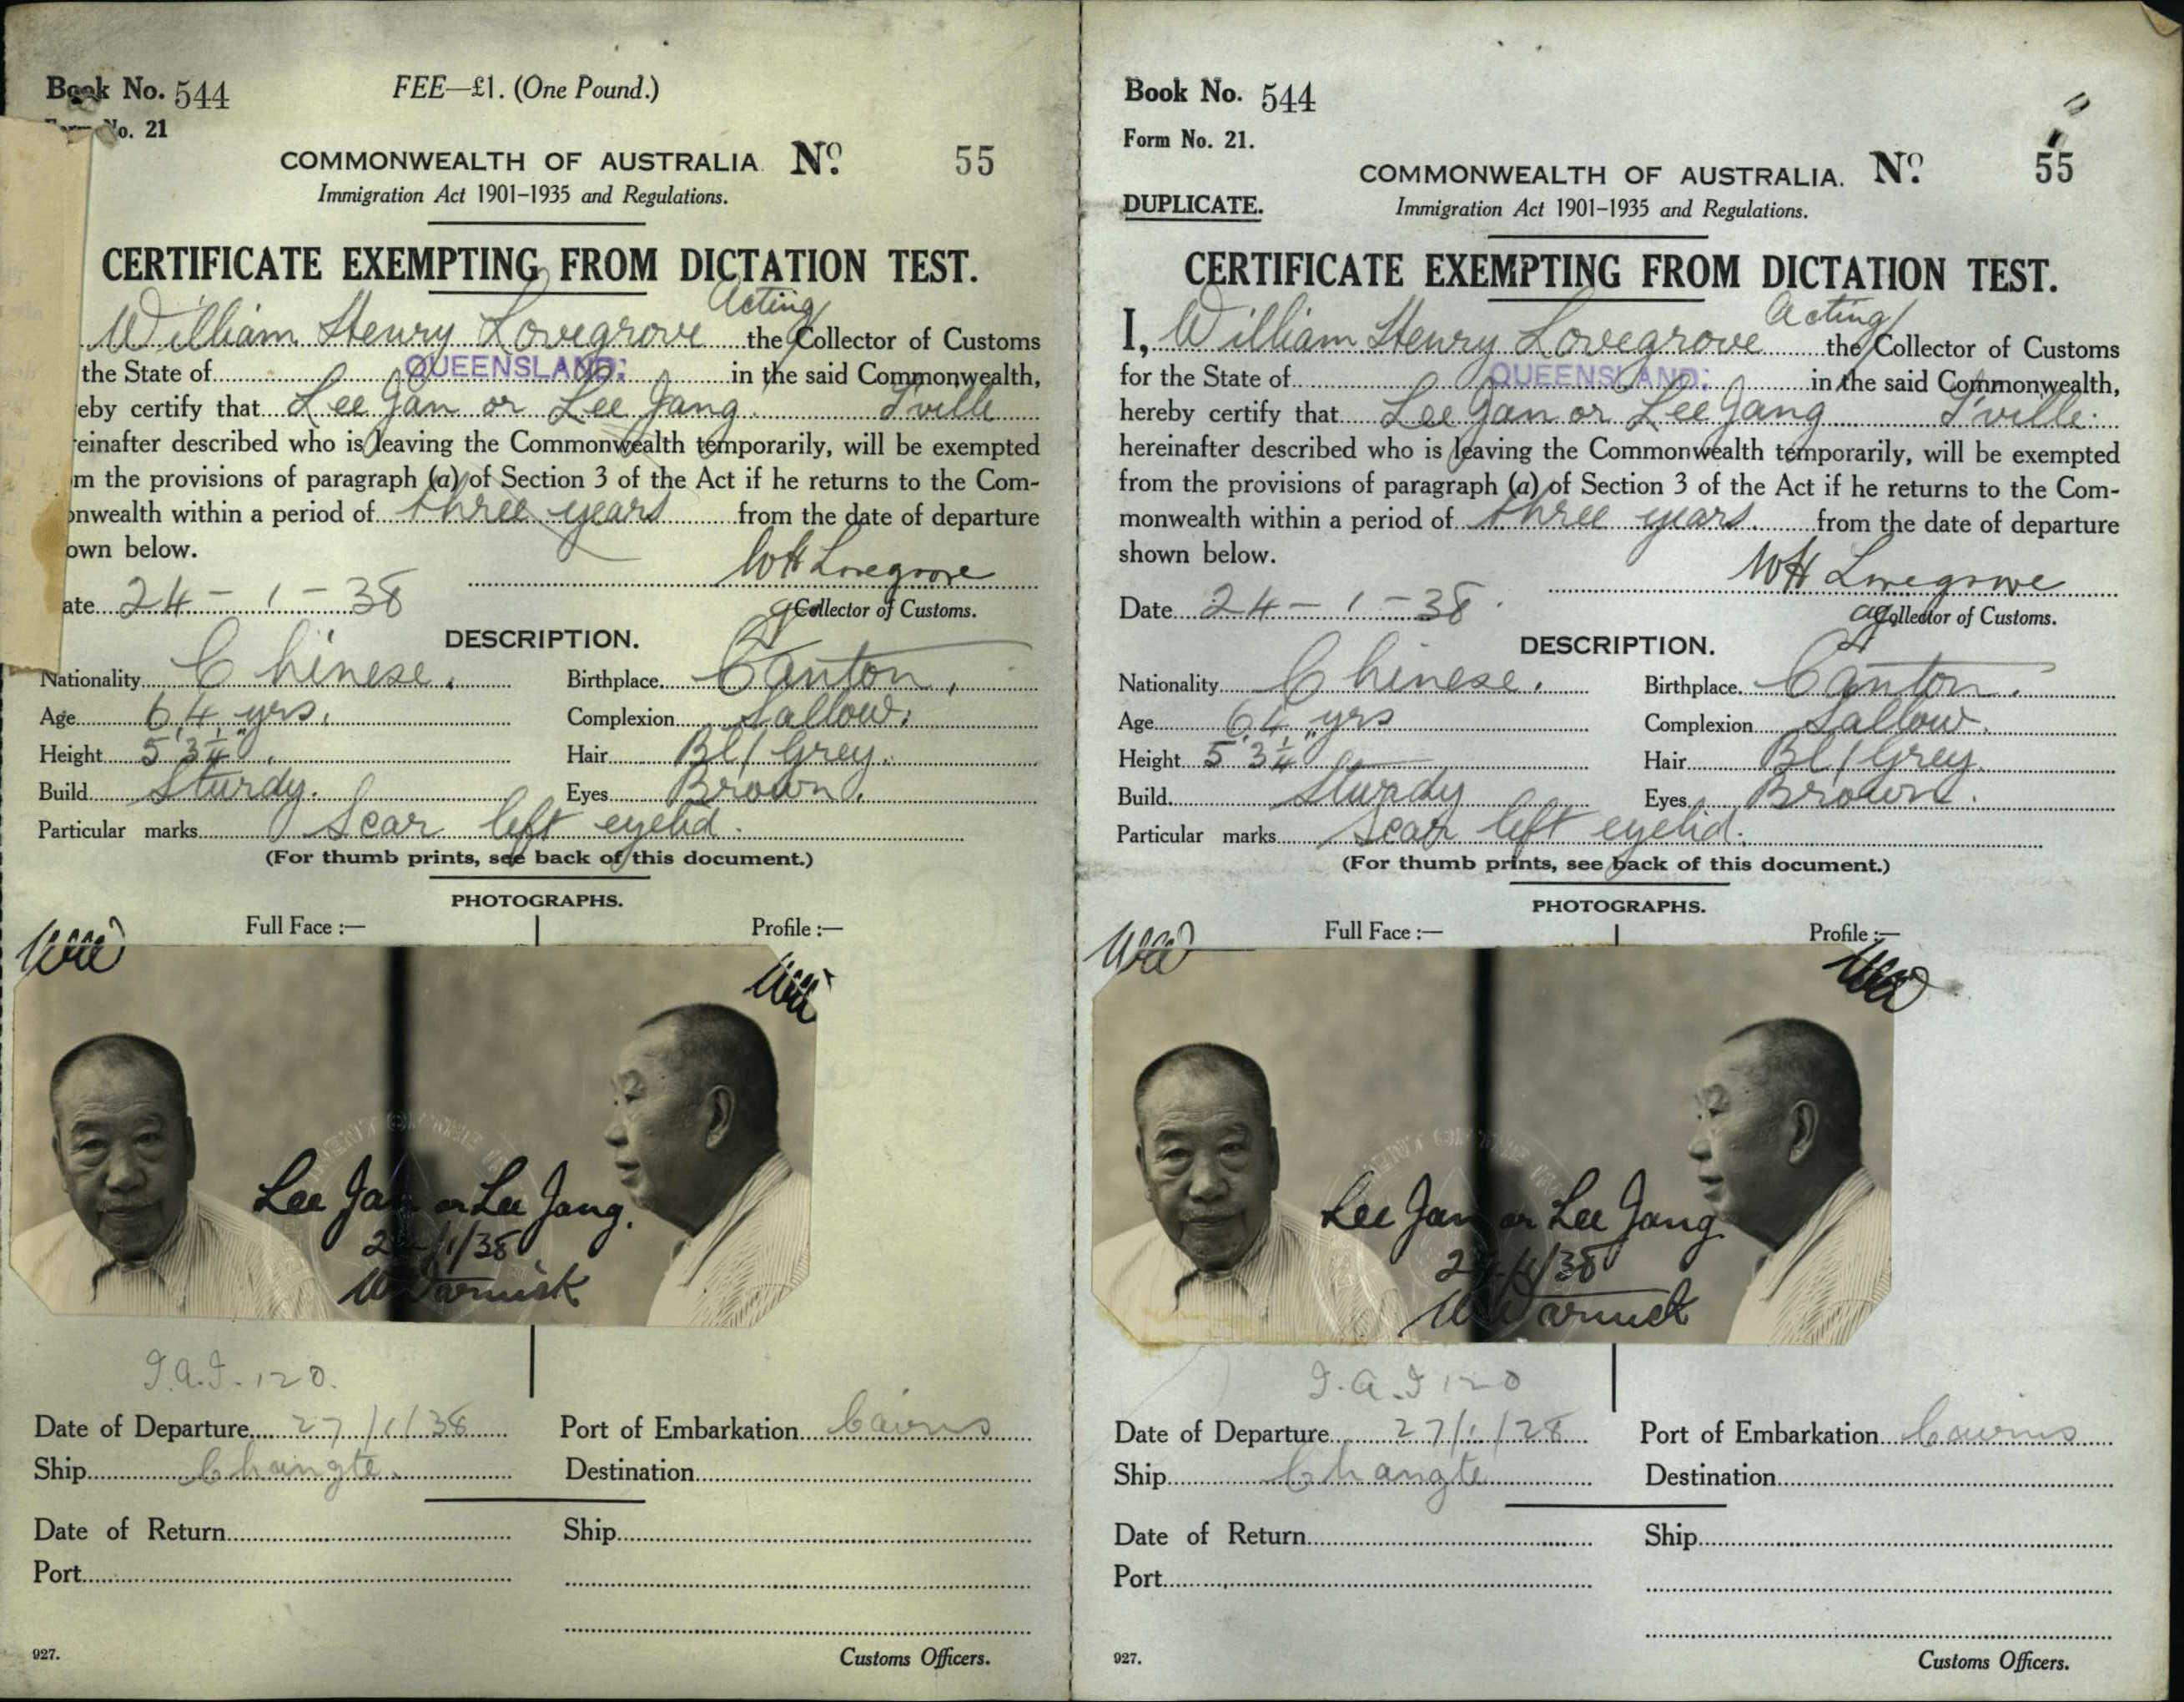 Book No. 544
FEE—£1. (One Pound.)
Form No. 21
COMMONWEALTH OF AUSTRALIA. No. 55
Immigration Act 1901–1935 and Regulations.
CERTIFICATE EXEMPTING FROM DICTATION TEST.
Acting
William Henry Lovegrove the Collector of Customs
the State of QUEENSLAND: in the said Commonwealth,
eby certify that Lee Jan or Lee Jang. T'ville
einafter described who is leaving the Commonwealth temporarily, will be exempted
m the provisions of paragraph (a) of Section 3 of the Act if he returns to the Com-
onwealth within a period of three years from the date of departure
own below.
WH Lovegrove
ate 24 – 1 – 38
Collector of Customs.
DESCRIPTION.
Nationality Chinese. Birthplace Canton.
Age 64 yrs. Complexion Sallow.
Height 5' 3¼". Hair Bl/Grey.
Build Sturdy. Eyes Brown.
Particular marks Scar left eyelid.
(For thumb prints, see back of this document.)
PHOTOGRAPHS.
Full Face :— Profile :—
Lee Jan or Lee Jang.
24/1/38
I.a.I. 120.
Date of Departure 27/1/38 Port of Embarkation Cairns
Ship Changte. Destination
Date of Return Ship
Port
927. Customs Officers.
Book No. 544
Form No. 21.
COMMONWEALTH OF AUSTRALIA. No. 55
DUPLICATE.
Immigration Act 1901–1935 and Regulations.
CERTIFICATE EXEMPTING FROM DICTATION TEST.
Acting
I, William Henry Lovegrove the Collector of Customs
for the State of QUEENSLAND: in the said Commonwealth,
hereby certify that Lee Jan or Lee Jang T'ville.
hereinafter described who is leaving the Commonwealth temporarily, will be exempted
from the provisions of paragraph (a) of Section 3 of the Act if he returns to the Com-
monwealth within a period of three years. from the date of departure
shown below.
WH Lovegrove
Date 24 – 1 – 38.
ag Collector of Customs.
DESCRIPTION.
Nationality Chinese. Birthplace Canton.
Age 64 yrs Complexion Sallow.
Height 5' 3¼" Hair Bl/Grey.
Build Sturdy Eyes Brown.
Particular marks Scar left eyelid.
(For thumb prints, see back of this document.)
PHOTOGRAPHS.
Full Face :— Profile :—
Lee Jan or Lee Jang
24/1/38
I.a.I 120
Date of Departure 27/1/28 Port of Embarkation Cairns
Ship Changte Destination
Date of Return Ship
Port
927. Customs Officers.